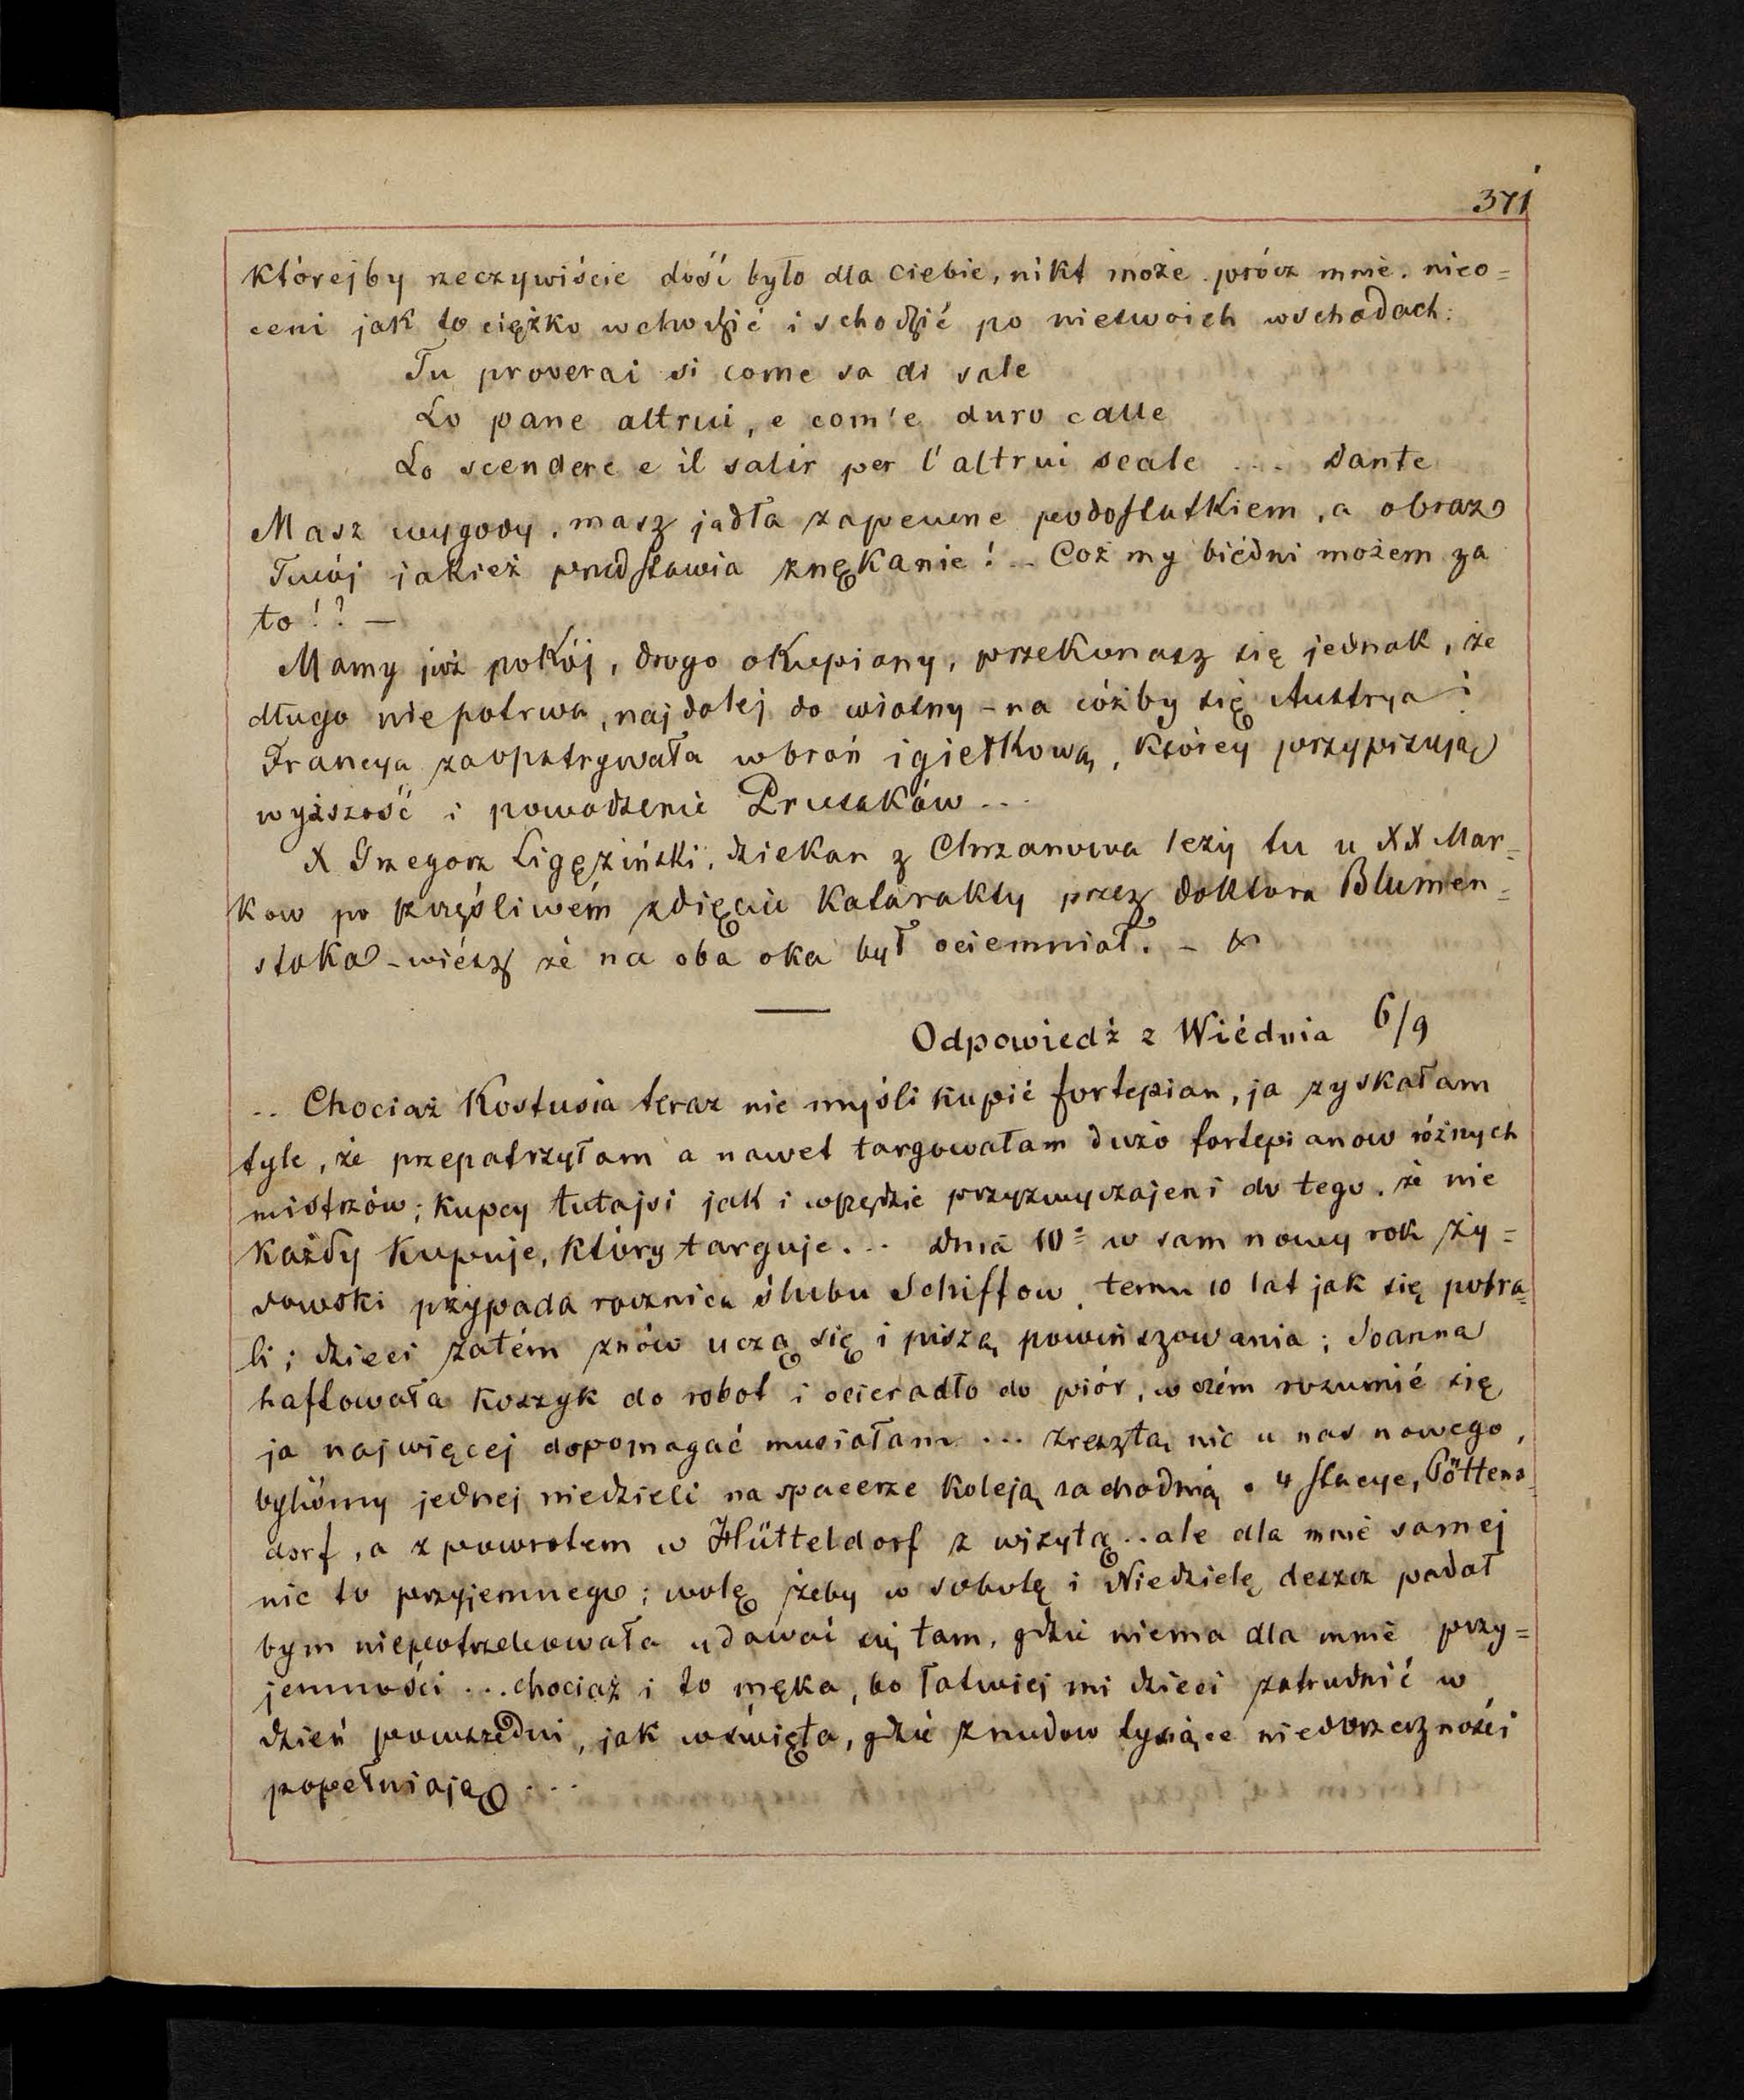 371
którejby rzeczywiście dość było dla ciebie, nikt może prócz mnie. nieo=
ceni jak to ciężko wchodzić i schodzić po nieswoich wschodach:
Tu proverai si come sa di sale
Lo pane altrui, e com'e duro calle
Lo scendere e il salir per l'altrui scale .... Dante
Masz wygody, masz jadła zapewne podostatkiem, a obraz
Twój jakież przedstawia znękanie! .. Coż my biédni możem za
to!? —
Mamy już pokój, drogo okupiony, przekonasz się jednak, że
długo niepotrwa, najdalej do wiosny - na cóżby się Austrya i
Francya zaopatrywała w broń igiełkową, którey przypisują
wyższość i powodzenie Prusaków...
X Grzegorz Ligęziński, dziekan z Chrzanowa leży tu u XX Mar=
kow po szczęśliwém zdięciu katarakty przez doktora Blumen=
stoka - wiész że na oba oka był ociemniał. -
Odpowiedź z Wiédnia 6/9
.. Chociaż Kostusia teraz nie myśli kupić fortepian, ja zyskałam
tyle, że przepatrzyłam a nawet targowałam dużo fortepianow różnych
mistrzów; kupcy tutajsi jak i wszędzie przyzwyczajeni do tego, że nie
każdy kupuje, który targuje... dnia 10= w sam nowy rok ży=
dowski przypada rocznica ślubu Schiffow, temu 10 lat jak się pobra=
li; dzieci zatém znów uczą się i piszą powińszowania; Joanna
haftowała koszyk do robot i ocieradło do piór, w czém rozumié się
ja najwięcej dopomagać musiałam ... zresztą nic u nas nowego,
byliśmy jednej niedzieli na spacerze koleją zachodnią o 4 stacye, Pöttens=
dorf, a z powrotem w Hütteldorf z wizytą .. ale dla mnie samej
nic to przyjemnego; wolę żeby w sobotę i Niedzielę deszcz padał
bym niepotrzebowała udawać się tam, gdzie niema dla mnie przy=
jemności ... chociaż i to męka, bo łatwiej mi dzieci zatrudnić w
dzień powszedni, jak w święta, gdzie z nudow tysiące niedorzeczności
popełniają ...